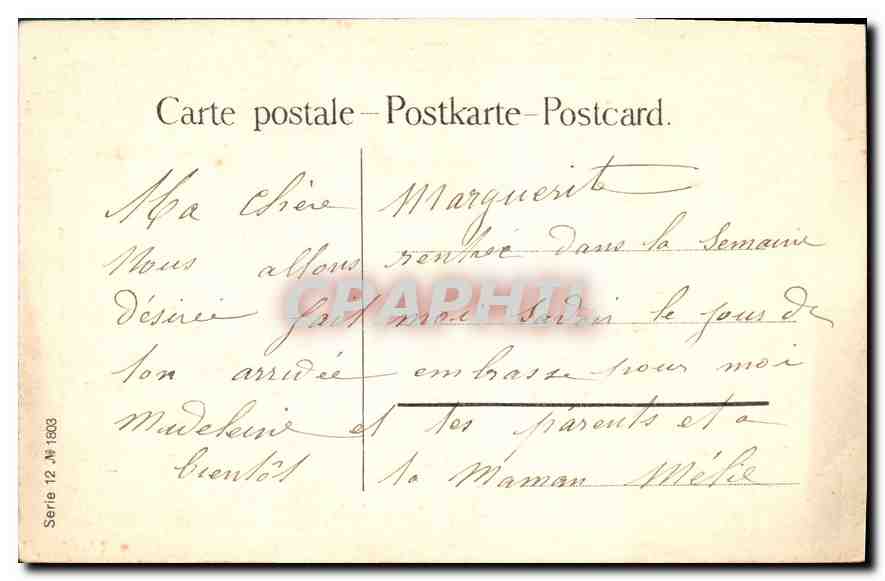 Carte postale – Postkarte – Postcard.
Ma chère Marguerite
Nous allons rentrée dans la semaine
désirée fait moi savoir le jour de
ton arrivée embrasse pour moi
Madeleine et tes parents et a
bientôt ta Maman Mélie
Serie 12 № 1803
CPAPHIL